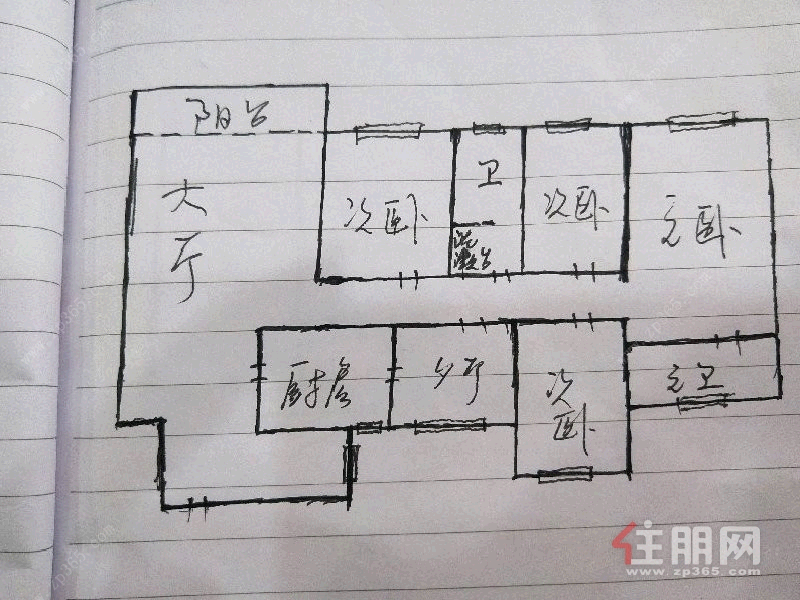 阳台
大厅
次卧
卫
次卧
主卧
洗漱台
厨房
夕厅
次卧
主卫
住朋网
www.zp365.com